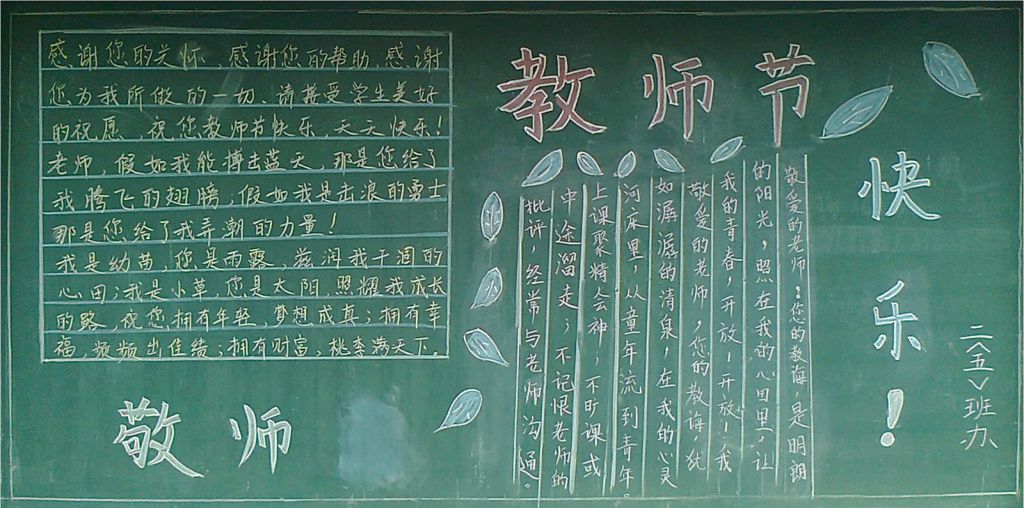 感谢您的关怀、感谢您的帮助、感谢
您为我所做的一切、请接受学生美好
的祝愿，祝您教师节快乐，天天快乐！
老师，假如我能搏击蓝天，那是您给了
我腾飞的翅膀；假如我是击浪的勇士
那是您给了我弄潮的力量！
我是幼苗，您是雨露，滋润我干涸的
心田；我是小草，您是太阳，照耀我成长
的路，祝您，拥有年轻，梦想成真；拥有幸
福，频频出佳绩；拥有财富，桃李满天下。
敬师
教师节
快乐！
敬爱的老师！您的教诲，是明朗
的阳光，照在我的心田里，让
我的青春，开放！开放！我
敬爱的老师，您的教诲，犹
如潺潺的清泉，在我的心灵
河床里，从童年流到青年。
上课聚精会神；不旷课或
中途溜走；不记恨老师的
批评，经常与老师沟通。
二八五班办